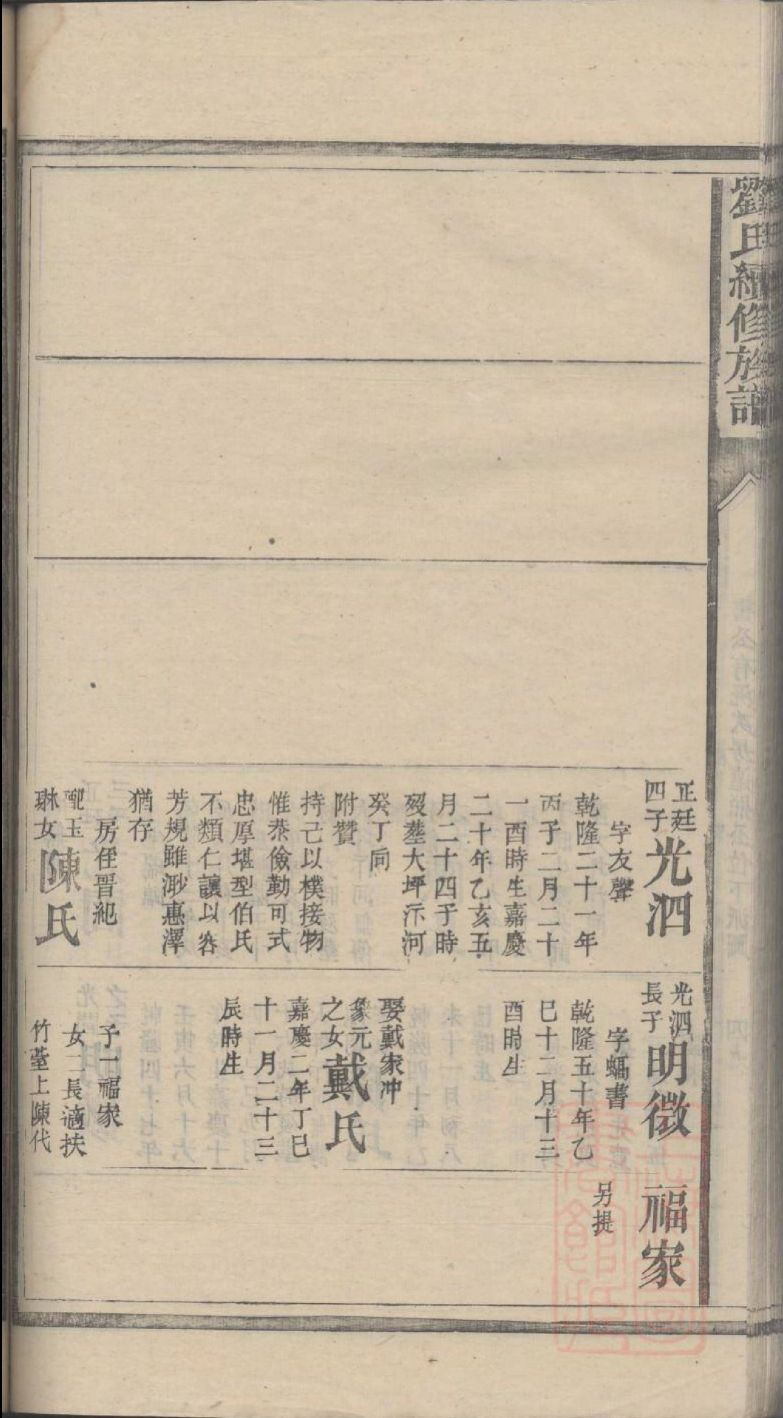 劉氏續修族譜
正廷
四子
光泗
字友聲
乾隆二十一年
丙子二月二十
一酉時生嘉慶
二十年乙亥五
月二十四子時
歿塟大坪示河
癸丁向
附贊
持己以樸接物
惟恭儉勤可式
忠厚堪型伯氏
不類仁讓以咨
芳規雖渺惠澤
猶存
房侄晋紀
配玉
琳女
陳氏
光泗
長子
明徵
字蝠書
乾隆五十年乙
巳十二月十三
酉時生
娶戴家冲
象元
之女
戴氏
嘉慶二年丁巳
十一月二十三
辰時生
子一福家
女二長適扶
竹臺上陳代
福家
另提